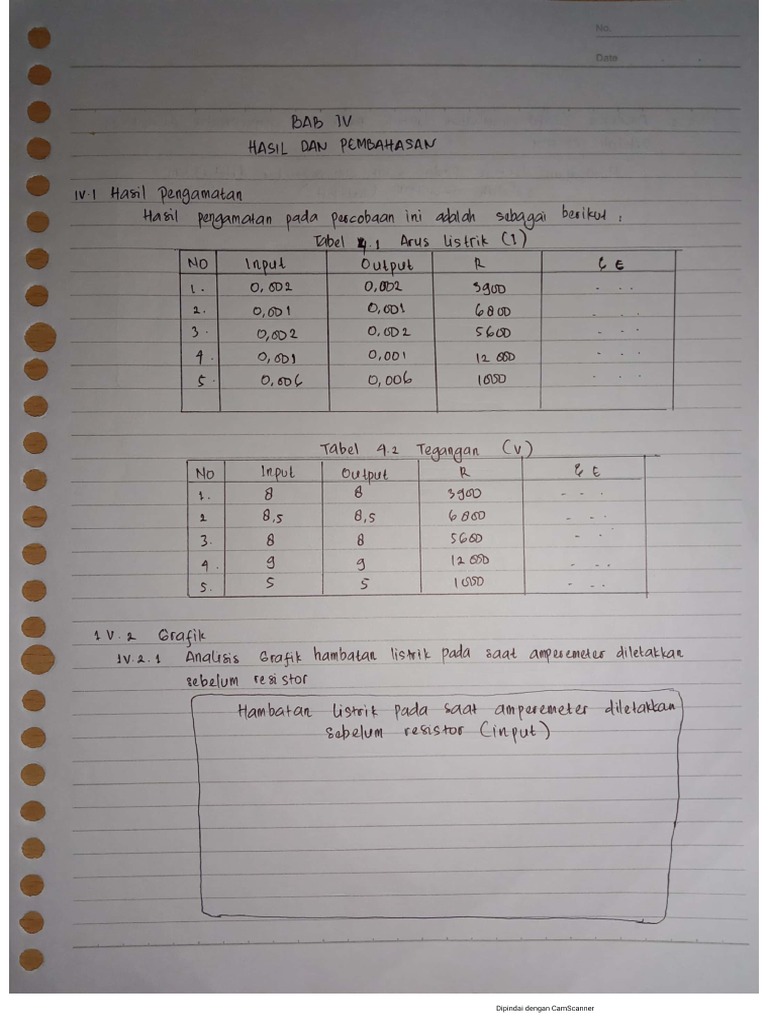 No.
Date
BAB IV
HASIL DAN PEMBAHASAN
IV.1 Hasil Pengamatan
Hasil pengamatan pada percobaan ini adalah sebagai berikut :
Tabel 4.1 Arus Listrik (I)
NO Input Output R E
1. 0,002 0,002 3900 ...
2. 0,001 0,001 6800 ...
3. 0,002 0,002 5600 ...
4. 0,001 0,001 12000 ...
5. 0,006 0,006 1000 ...
Tabel 4.2 Tegangan (V)
NO Input Output R E
1. 8 8 3900 ...
2 8,5 8,5 6800 ...
3. 8 8 5600 ...
4. 9 9 12000 ...
5. 5 5 1000 ...
IV.2 Grafik
IV.2.1 Analisis Grafik hambatan listrik pada saat amperemeter diletakkan
sebelum resistor
Hambatan listrik pada saat amperemeter diletakkan
sebelum resistor (input)
Dipindai dengan CamScanner